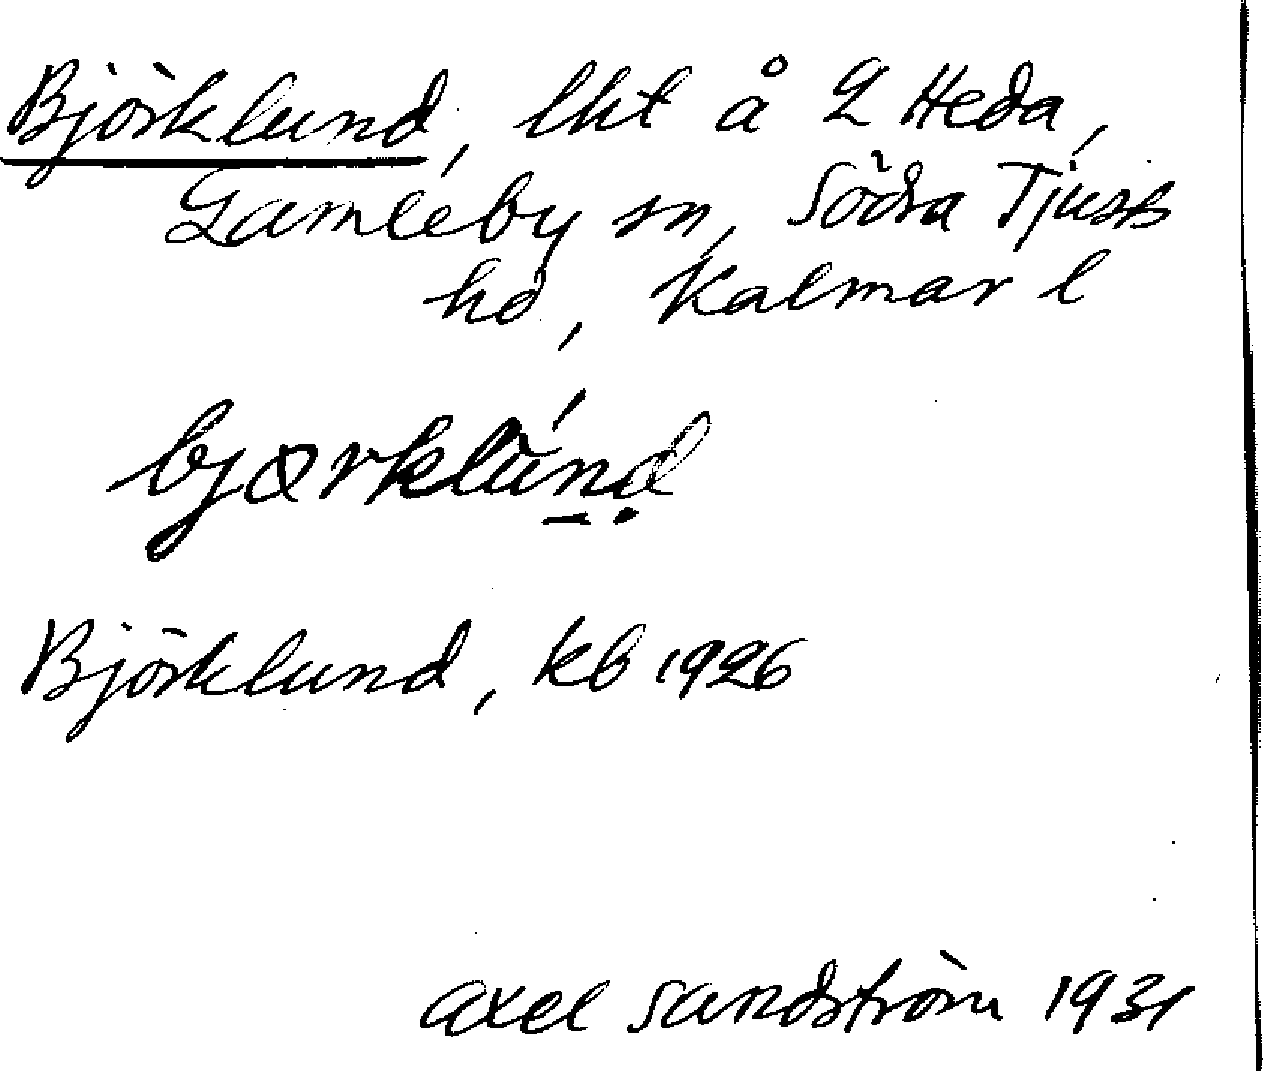 Björklund, lht å L Heda,
Gamleby sn, Södra Tjusts
hd, Kalmar l
bjørklúnd
Björklund, kb 1926
Axel Sandström 1931